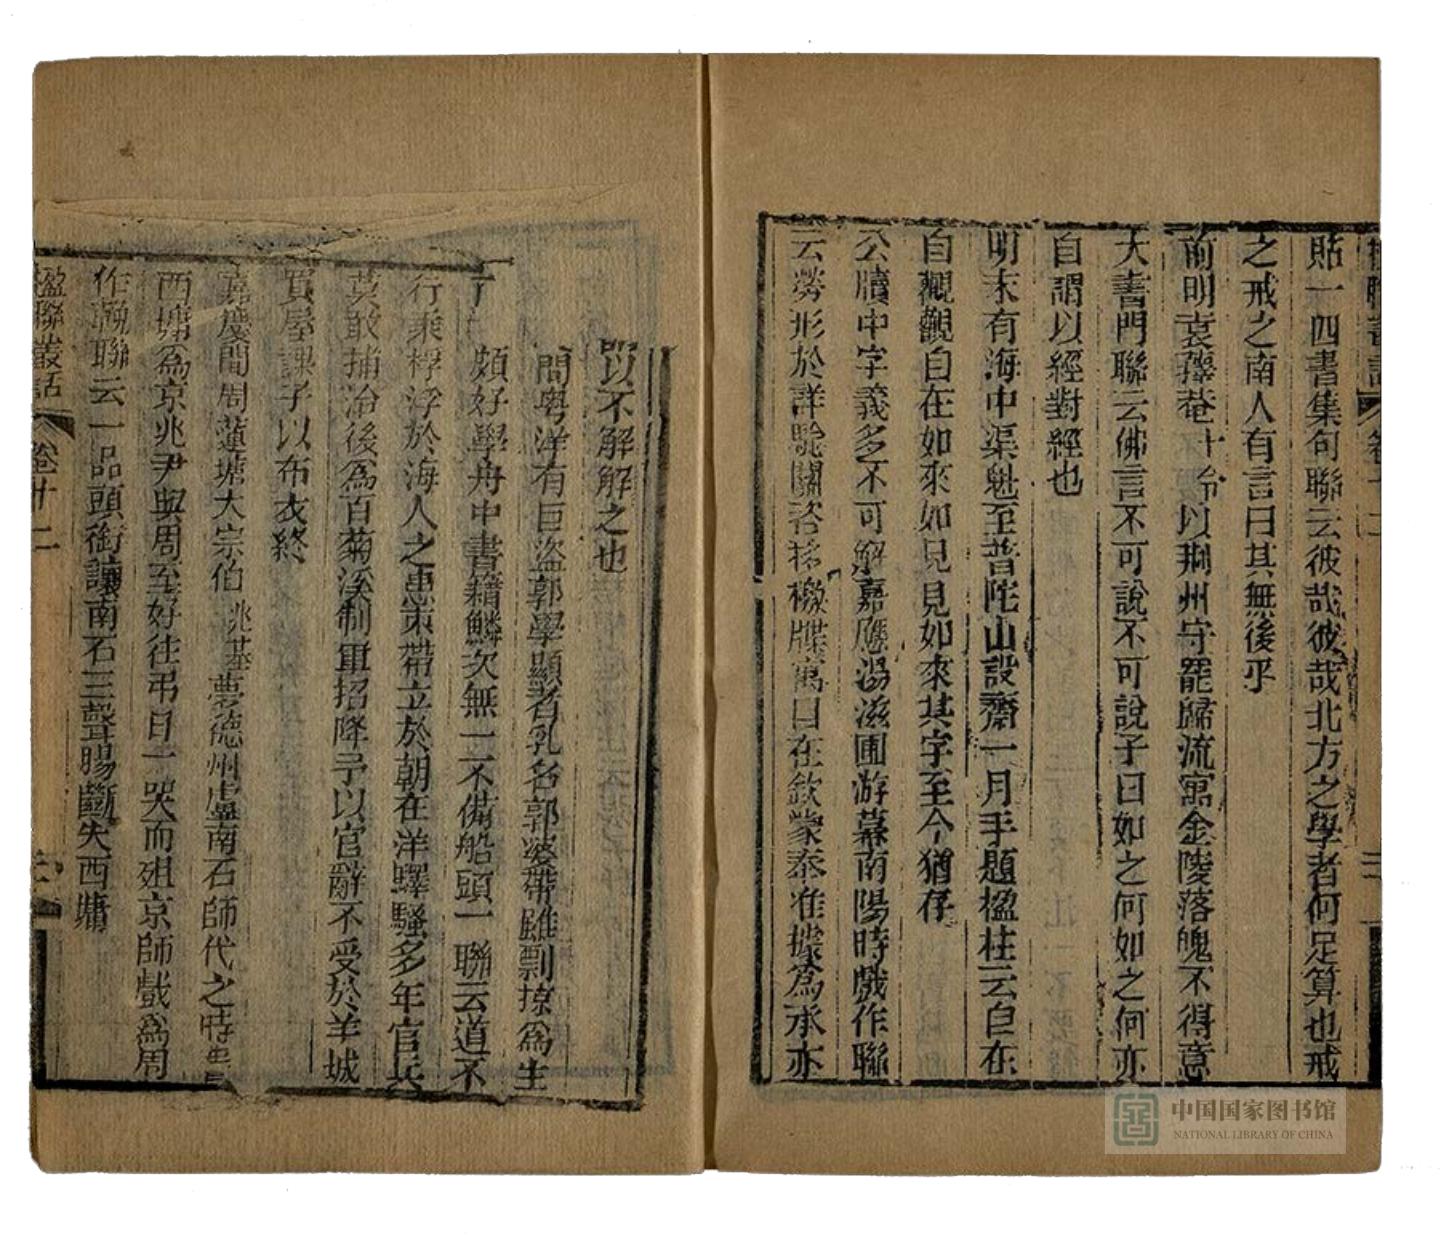 貼一四書集句聯云彼哉彼哉北方之學者何足算也戒
之戒之南人有言曰其無後乎
前明袁籜菴于令以荆州守罷歸流寓金陵落魄不得意
大書門聯云佛言不可說不可說子曰如之何如之何亦
自謂以經對經也
明末有海中渠魁至普陀山設齋一月手題楹柱云自在
自觀觀自在如來如見見如來其字至今猶存
公牘中字義多不可解嘉應湯滋圃游幕南陽時戲作聯
云勞形於詳驗關咨移檄牒寓目在欽蒙奉准據爲承亦
以不解解之也
間粤洋有巨盜郭學顯者乳名郭婆帶雖剽掠爲生
頗好學舟中書籍鱗次無一不備船頭一聯云道不
行乘桴浮於海人之患束帶立於朝在洋驛騷多年官兵
莫敢捕治後爲百菊溪制軍招降予以官辭不受於羊城
買屋課子以布衣終
嘉慶間周蓮塘大宗伯兆基薨德州盧南石師代之時
西塘爲京兆尹與周至好往弔日一哭而殂京師戲爲周
作輓聯云一品頭銜讓南石三聲腸斷失西塘
楹聯叢話
卷十二